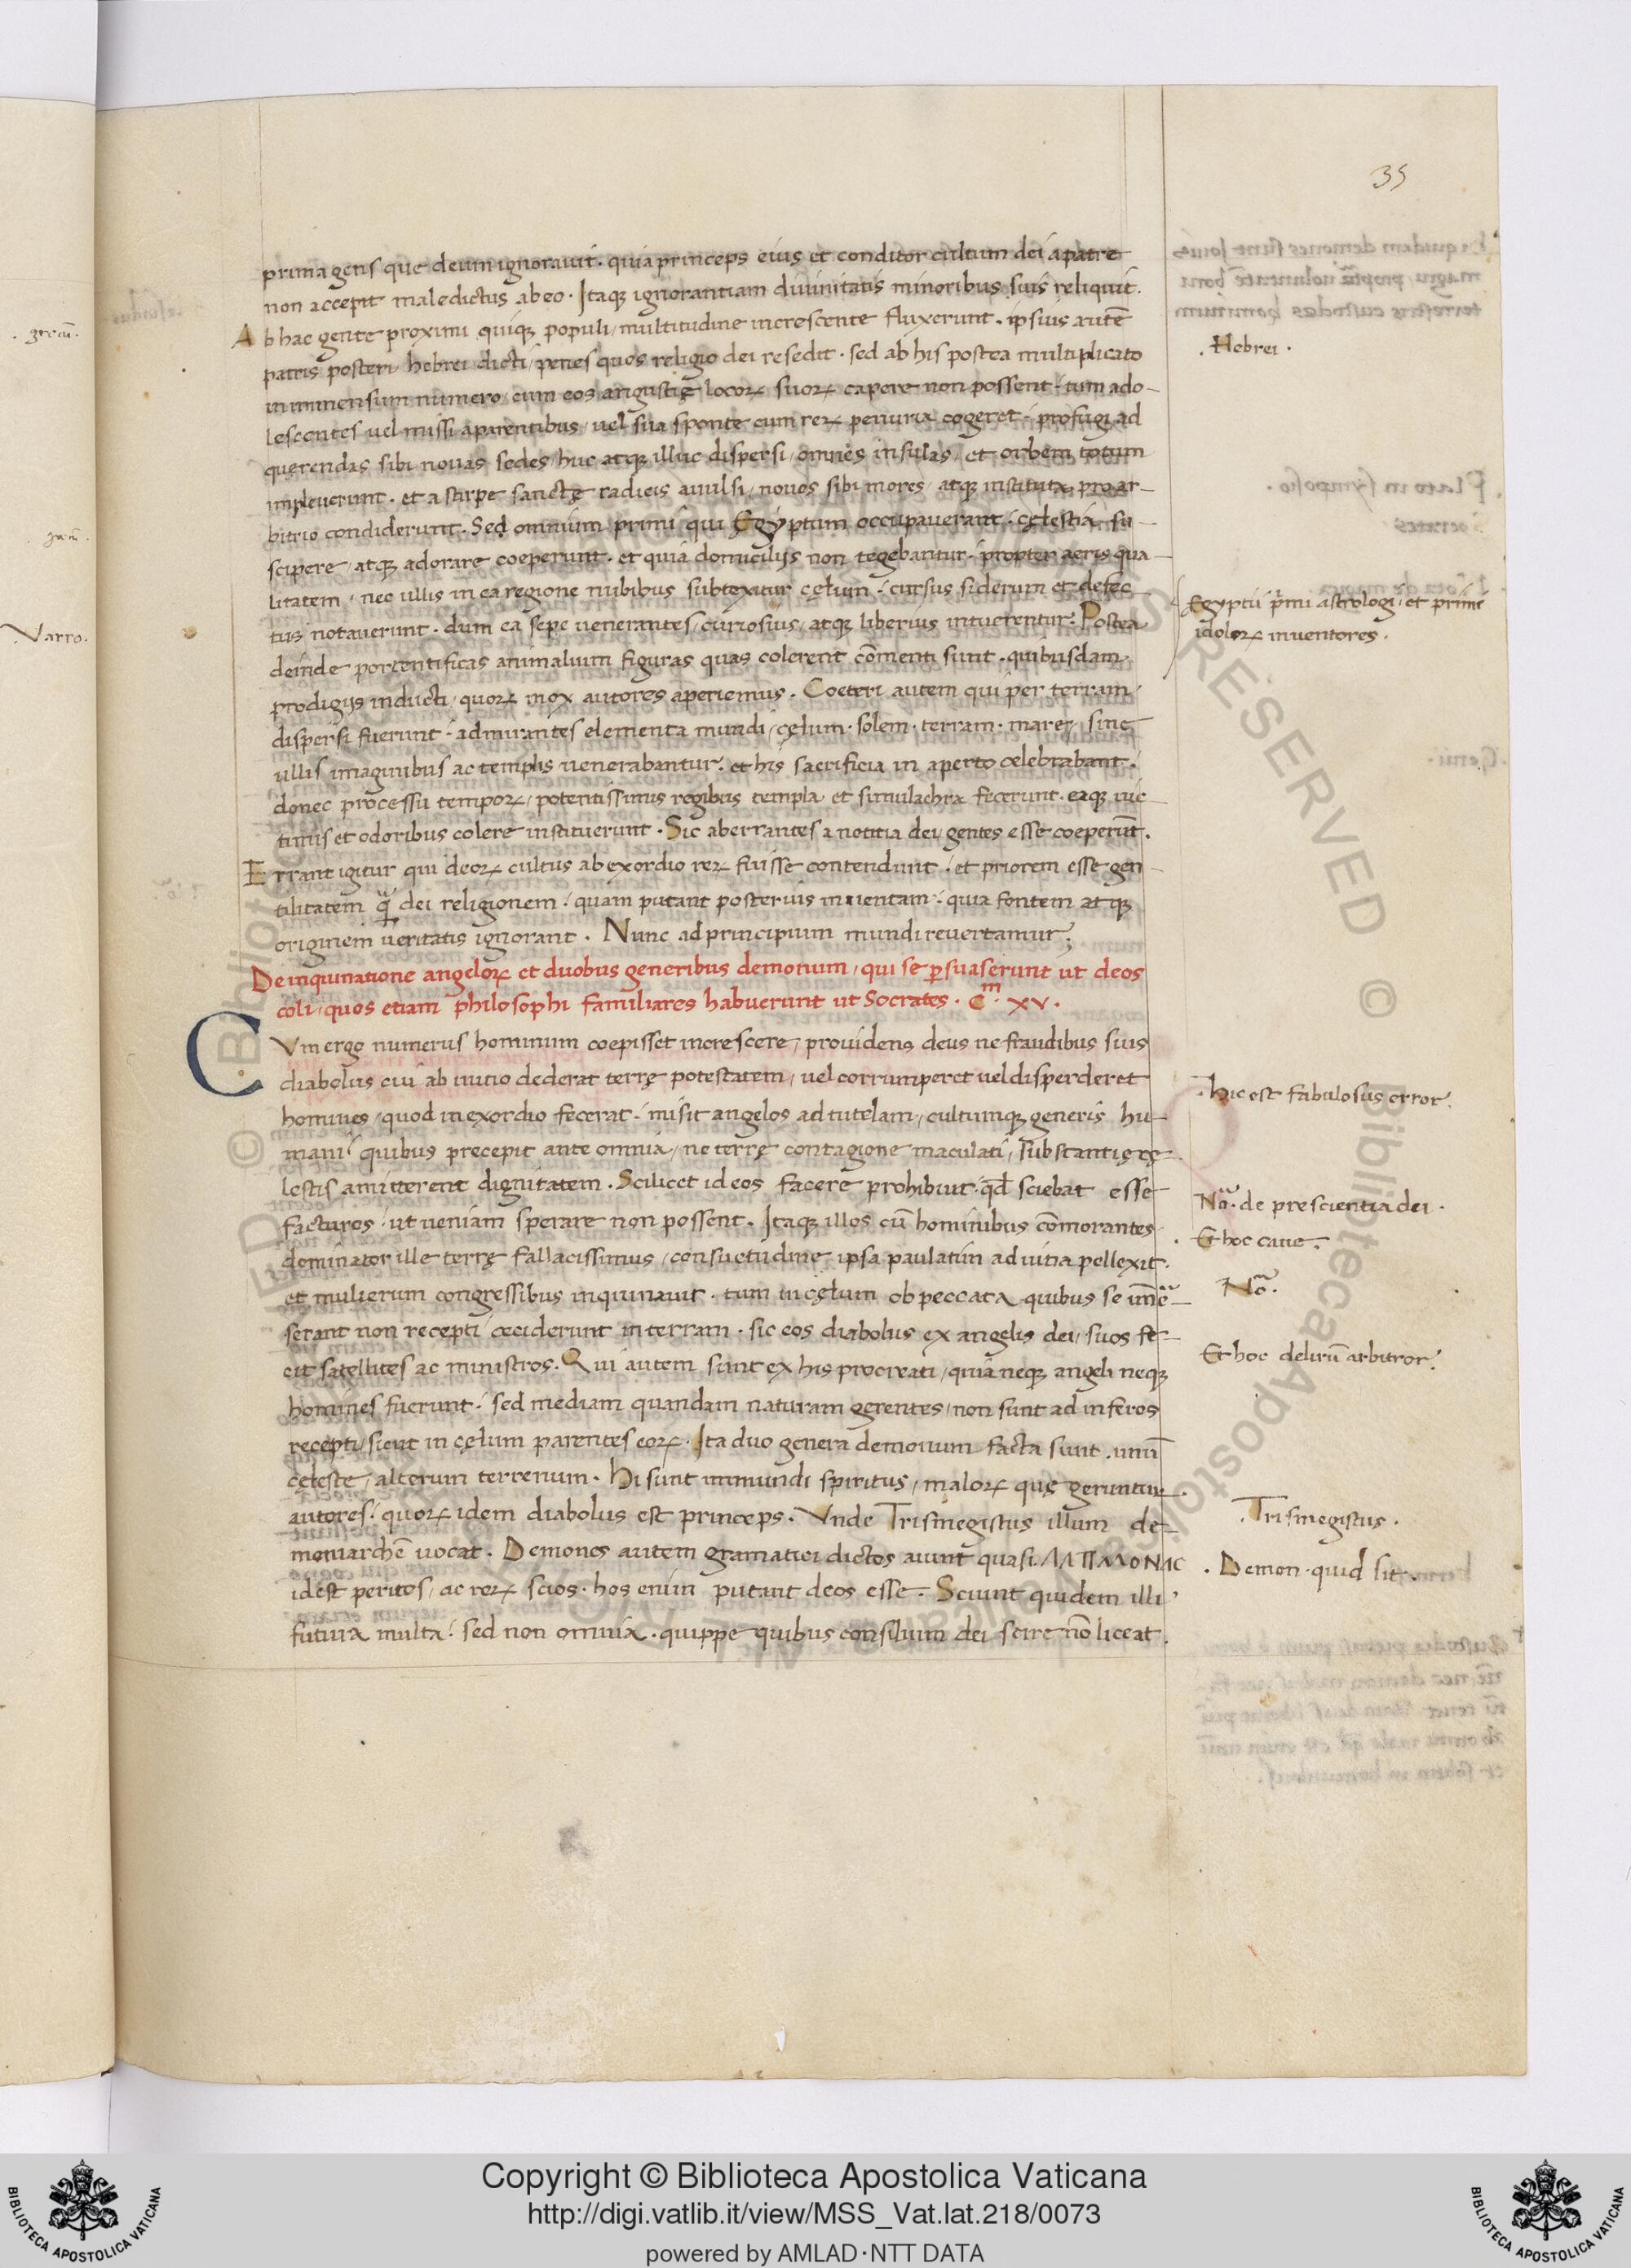 35
prima gens que deum ignorauit. quia princeps eius et conditor cultum dei a patre
non accepit maledictus ab eo. Itaqꝫ ignorantiam diuinitatis minoribus suis reliquit.
Ab hac gente proximi quiqꝫ populi / multitudine increscente fluxerunt. ipsius autē
patris posteri / hebrei dicti / penes quos religio dei resedit. sed ab his postea multiplicato
in immensum numero / cum eos angustię locoꝝ suoꝝ capere non possent. tum ado-
lescentes uel missi a parentibus / uel sua sponte cum reꝝ penuria cogeret. profugi ad
querendas sibi nouas sedes / huc atqꝫ illuc dispersi / omnes insulas / et orbem totum
impleuerunt. et a stirpe sanctę radicis auulsi / nouos sibi mores / atqꝫ instituta pro ar-
bitrio condiderunt. Sed omnium primi qui Egyptum occupauerant. cęlestia su-
scipere / atqꝫ adorare coeperunt. et quia domicilijs non tegebantur. propter aeris qua-
litatem. nec ullis in ea regione nubibus subtexitur cęlum. cursus siderum et defec-
tus notauerunt. dum ea sepe uenerantes / curiosius / atqꝫ liberius intuerentur. Postea
deinde portentificas animalium figuras quas colerent cōmenti sunt. quibusdam
prodigijs inducti / quoꝝ mox autores aperiemus. Coeteri autem qui per terram
dispersi fuerunt. admirantes elementa mundi / cęlum. solem. terram. mare / sine
ullis imaginibus ac templis uenerabantur. et his sacrificia in aperto celebrabant.
donec processu tempoꝝ / potentissimis regibus templa et simulachra fecerunt. eaqꝫ uic-
timis et odoribus colere instituerunt. Sic aberrantes a notitia dei gentes esse coeperūt.
Errant igitur qui deoꝝ cultus ab exordio reꝝ fuisse contendunt. et priorem esse gen-
tilitatem q̈ dei religionem. quam putant posterius inuentam. quia fontem atqꝫ
originem ueritatis ignorant. Nunc ad principium mundi reuertamur;
De inquinatione angeloꝝ et duobus generibus demonum / qui se ꝑsuaserunt ut deos
coli / quos etiam philosophi familiares habuerunt ut Socrates. Cᵐ. XV.
CVm ergo numerus hominum coepisset increscere / prouidens deus ne fraudibus suis
diabolus cui ab initio dederat terrę potestatem / uel corrumperet uel disperderet
homines / quod in exordio fecerat. misit angelos ad tutelam / cultumqꝫ generis hu-
mani quibus precepit ante omnia / ne terrę contagione maculati / substantię cę-
lestis amitterent dignitatem. Scilicet id eos facere prohibuit. qd̄ sciebat esse
facturos. ut ueniam sperare non possent. Itaqꝫ illos cū hominibus cōmorantes
dominator ille terrę fallacissimus / consuetudine ipsa paulatim ad uitia pellexit.
et mulierum congressibus inquinauit. tum in cęlum ob peccata quibus se im̄e-
serant non recepti ceciderunt in terram. sic eos diabolus ex angelis dei / suos fe-
cit satellites ac ministros. Qui autem sunt ex his procreati / quia neqꝫ angeli neqꝫ
homines fuerunt. sed mediam quandam naturam gerentes / non sunt ad inferos
recepti / sicut in cęlum parentes eoꝝ. Ita duo genera demonum facta sunt. unū
cęleste / alterum terrenum. Hi sunt immundi spiritus / maloꝝ quę geruntur
autores. quoꝝ idem diabolus est princeps. Vnde Trismegistus illum de-
moniarchē uocat. Demones autem gramatici dictos aiunt quasi
idest peritos / ac reꝝ scios. hos enim putant deos esse. Sciunt quidem illi
futura multa. sed non omnia. quippe quibus consilium dei scire nō liceat.
. Hebrei .
Egyptii p̄mi astrologi. et prime
idoloꝝ inuentores.
. hic est fabulosus error.
Nō. de prescientia dei.
. Et hoc caue.
Nō.
Et hoc delirū arbitror.
. Trismegistus.
. Demon. quid sit.
Varro.
Copyright © Biblioteca Apostolica Vaticana
http://digi.vatlib.it/view/MSS_Vat.lat.218/0073
powered by AMLAD·NTT DATA
BIBLIOTECA APOSTOLICA VATICANA
BIBLIOTECA APOSTOLICA VATICANA